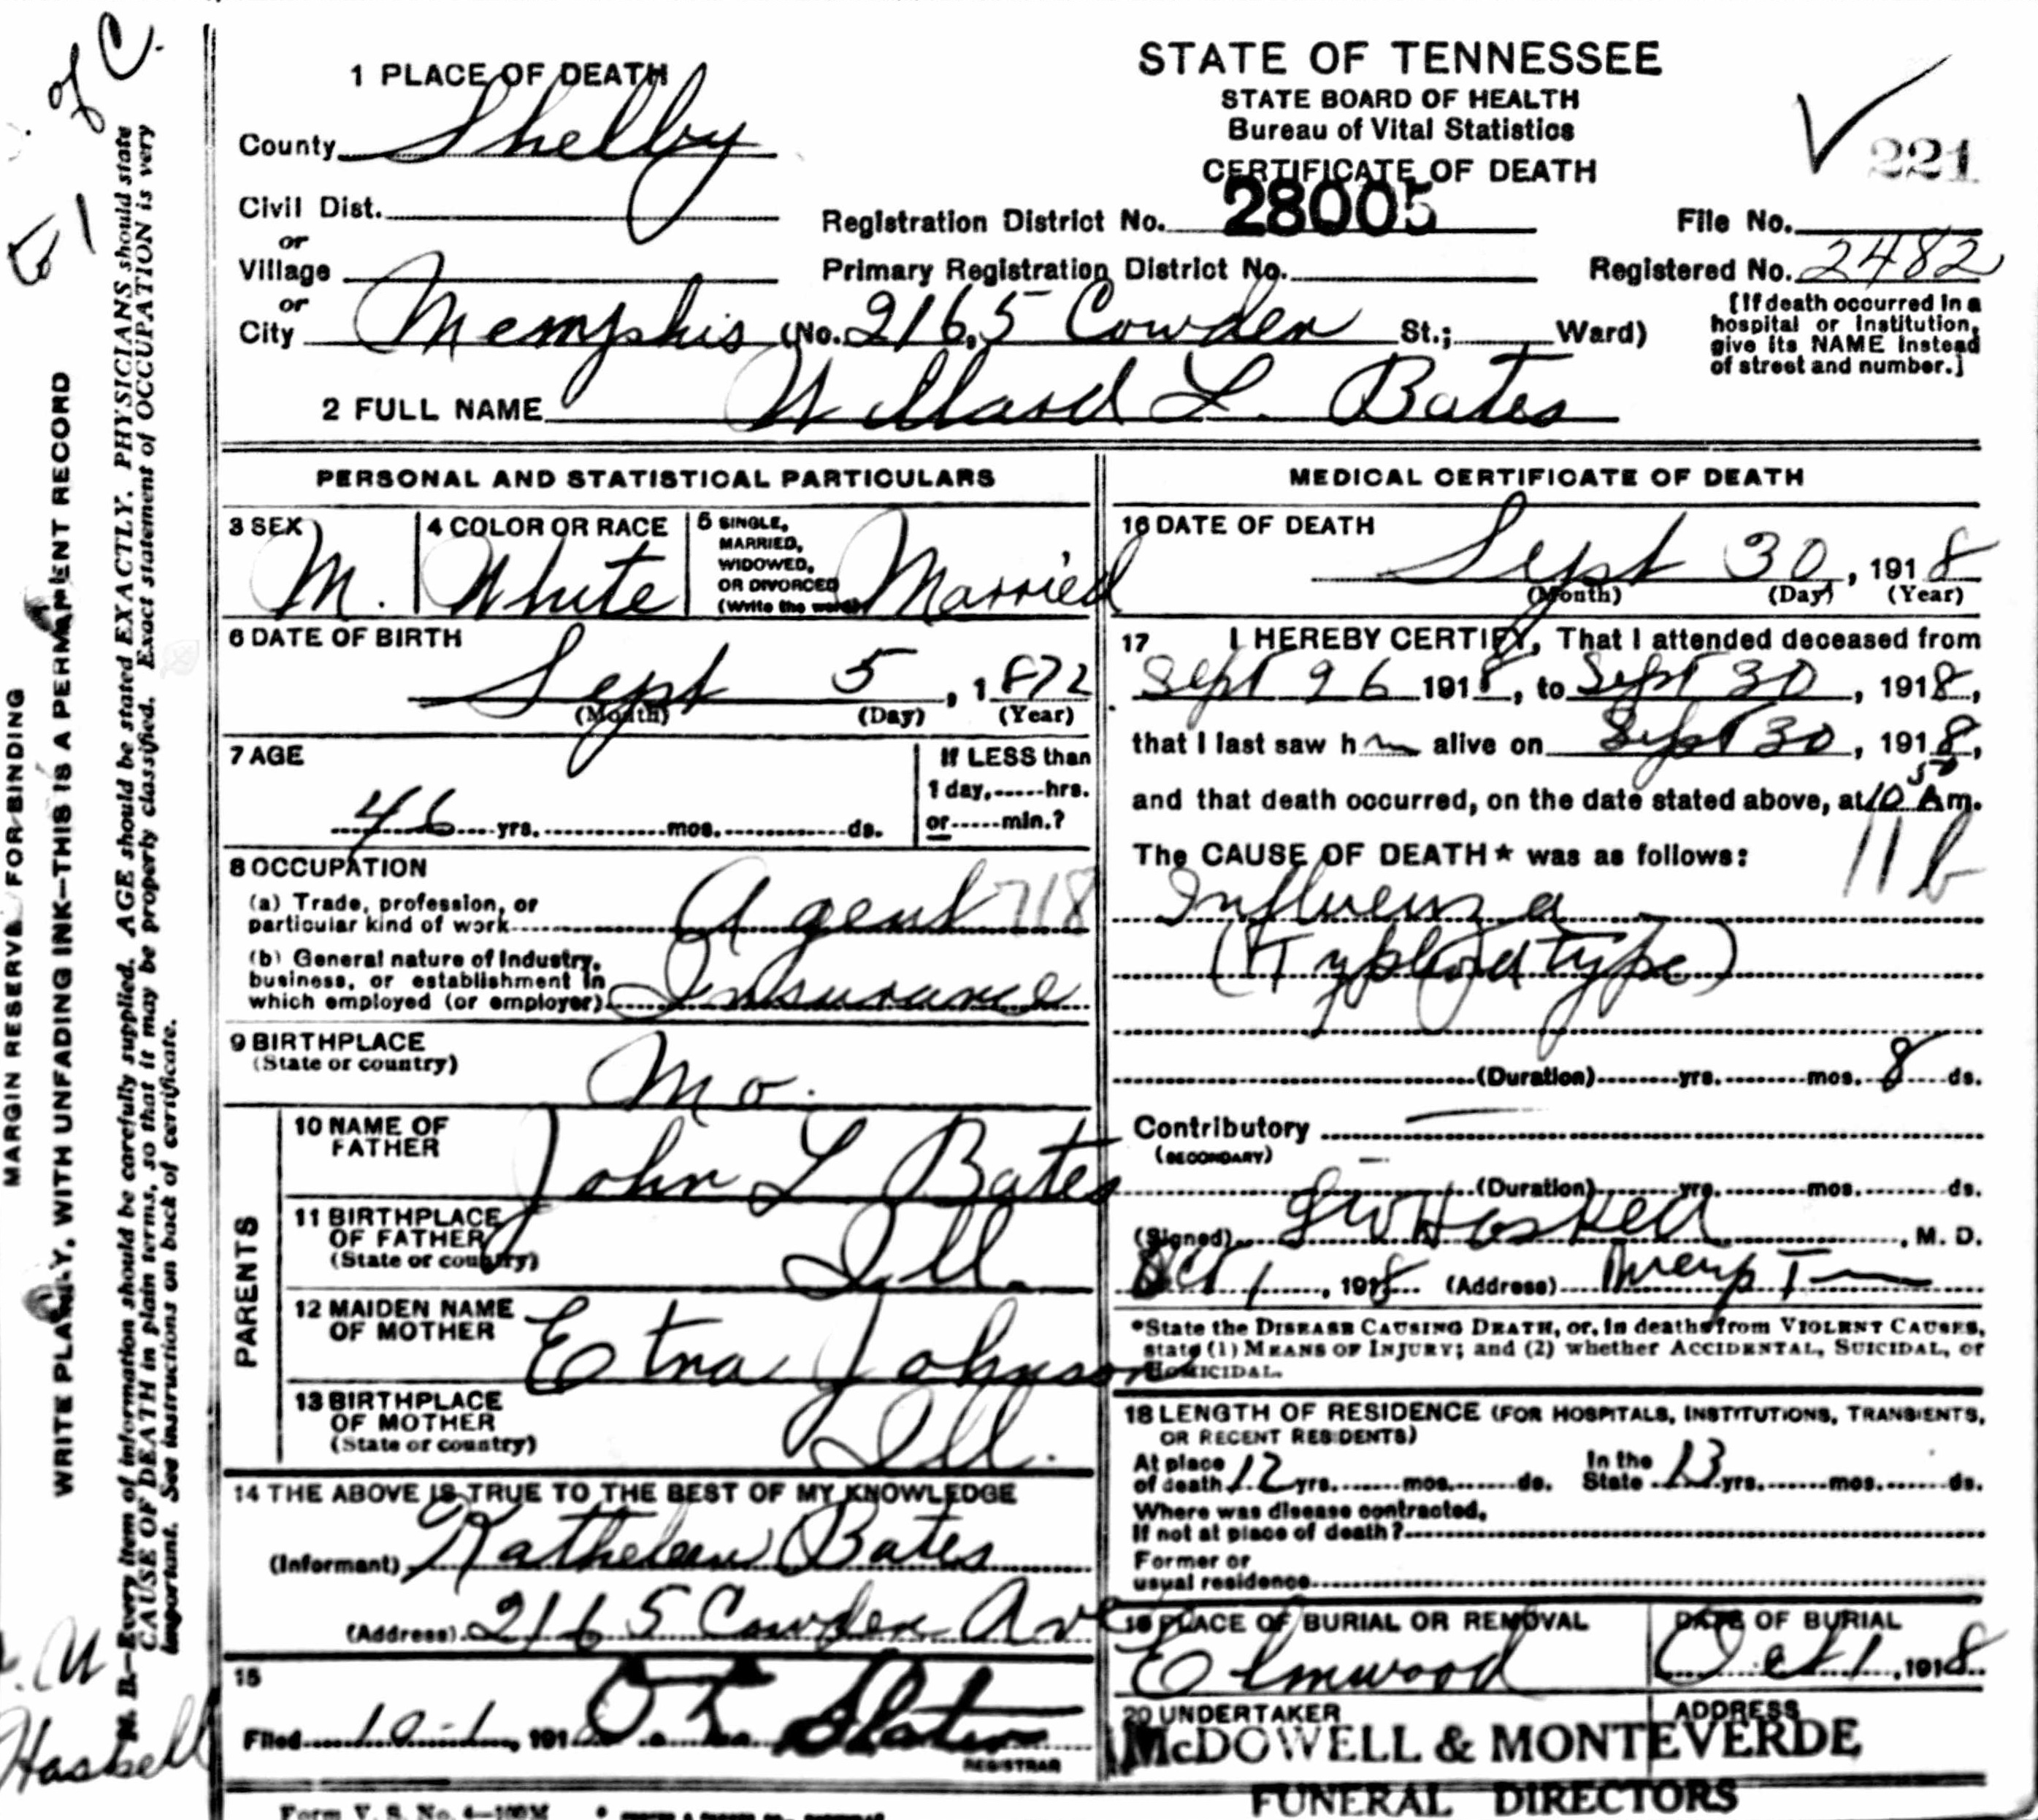 STATE OF TENNESSEE
STATE BOARD OF HEALTH
Bureau of Vital Statistics
CERTIFICATE OF DEATH
221
1 PLACE OF DEATH
County Shelby
Civil Dist.
or
Village
or
City Memphis (No. 2165 Cowden St.; Ward)
Registration District No. 28005
File No.
Primary Registration District No.
Registered No. 2482
[If death occurred in a
hospital or Institution,
give its NAME instead
of street and number.]
2 FULL NAME Willard L. Bates
PERSONAL AND STATISTICAL PARTICULARS
3 SEX M.
4 COLOR OR RACE White
5 SINGLE,
MARRIED,
WIDOWED,
OR DIVORCED
(Write the word) Married
6 DATE OF BIRTH
Sept 5, 1872
(Month) (Day) (Year)
7 AGE
46 yrs. mos. ds.
If LESS than
1 day, hrs.
or min.?
8 OCCUPATION
(a) Trade, profession, or
particular kind of work Agent 718
(b) General nature of Industry,
business, or establishment in
which employed (or employer) Insurance
9 BIRTHPLACE
(State or country) Mo.
PARENTS
10 NAME OF
FATHER John L Bates
11 BIRTHPLACE
OF FATHER
(State or country) Ill.
12 MAIDEN NAME
OF MOTHER Etna Johnson
13 BIRTHPLACE
OF MOTHER
(State or country) Ill.
14 THE ABOVE IS TRUE TO THE BEST OF MY KNOWLEDGE
(Informant) Katheleen Bates
(Address) 2165 Cowden Ave
15
Filed 10-1, 191
REGISTRAR
MEDICAL CERTIFICATE OF DEATH
16 DATE OF DEATH
Sept 30, 1918
(Month) (Day) (Year)
17 I HEREBY CERTIFY, That I attended deceased from
Sept 26 1918, to Sept 30, 1918,
that I last saw him alive on Sept 30, 1918,
and that death occurred, on the date stated above, at 10 50 Am.
The CAUSE OF DEATH* was as follows:
11b
Influenza
(Typhoid type)
(Duration) yrs. mos. 8 ds.
Contributory
(SECONDARY)
(Duration) yrs. mos. ds.
(Signed) Haskell, M. D.
Oct 1, 1918 (Address)
*State the DISEASE CAUSING DEATH, or, in deaths from VIOLENT CAUSES,
state (1) MEANS OF INJURY; and (2) whether ACCIDENTAL, SUICIDAL, or
HOMICIDAL.
18 LENGTH OF RESIDENCE (FOR HOSPITALS, INSTITUTIONS, TRANSIENTS,
OR RECENT RESIDENTS)
At place
of death 12 yrs. mos. ds.
In the
State 13 yrs. mos. ds.
Where was disease contracted,
If not at place of death?
Former or
usual residence
19 PLACE OF BURIAL OR REMOVAL
Elmwood
DATE OF BURIAL
Oct 1, 1918
20 UNDERTAKER
ADDRESS
McDOWELL & MONTEVERDE
FUNERAL DIRECTORS
Form V. S. No. 4—100M
MARGIN RESERVED FOR BINDING
WRITE PLAINLY, WITH UNFADING INK—THIS IS A PERMANENT RECORD
N. B.—Every item of information should be carefully supplied. AGE should be stated EXACTLY. PHYSICIANS should state
CAUSE OF DEATH in plain terms, so that it may be properly classified. Exact statement of OCCUPATION is very
important. See instructions on back of certificate.
of C.
Haskell